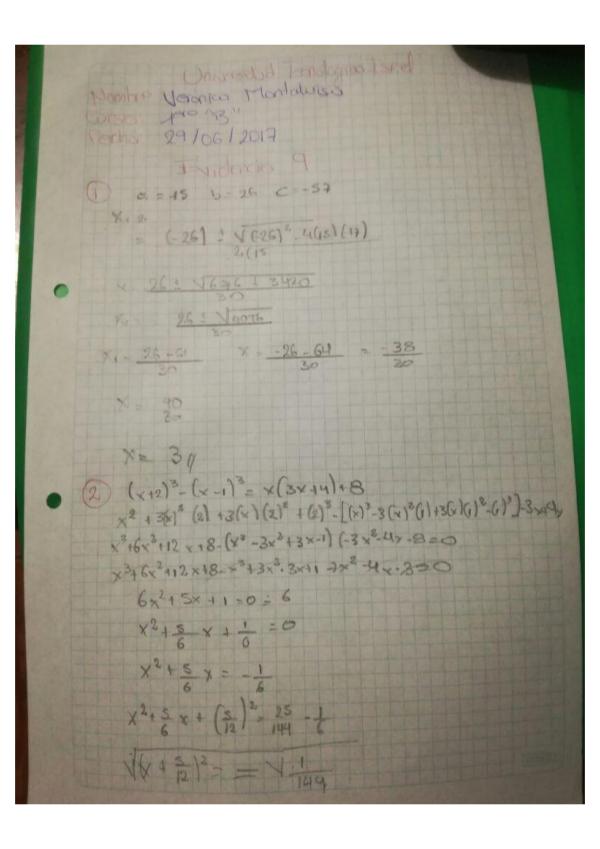 Universidad Tecnologica Israel
Nombre: Veronica Montaluisa
Curso: 1ro "B"
Fecha: 29/06/2017
9
① a = 15 b = 26 c = -57
= (-26) ± √(-26)² - 4(15)(17)
2(15
26 ± √676 + 3420
30
26 ± √4096
30
x₁ = 26 + 64 / 30 x = -26 - 64 / 30 = -38 / 20
x = 90
x = 3 //
② (x+2)³ - (x-1)³ = x(3x+4)+8
x² + 3(x)² (2) + 3(x)(2)² + (2)³ - [(x)³ - 3(x)²(1) + 3(x)(1)² - (1)³] - 3x+4
x³+6x²+12x+8-(x³-3x²+3x-1)(-3x²-4x-8=0
x³+6x²+12x+8-x³+3x²-3x+1-3x²-4x-8=0
6x²+5x+1=0 ÷ 6
x² + 5/6 x + 1/6 = 0
x² + 5/6 x = - 1/6
x² + 5/6 x + (5/12)² = 25/144 - 1/6
√(x + 5/12)² = = √ 1/144